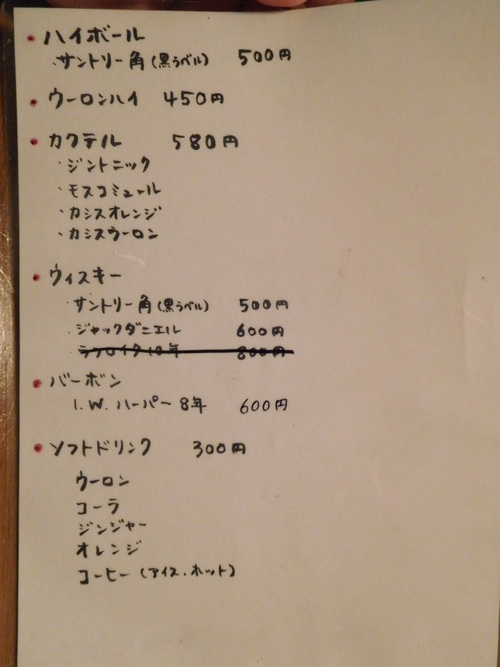 ハイボール
・サントリー角(黒ラベル) 500円
ウーロンハイ 450円
カクテル 580円
・ジントニック
・モスコミュール
・カシスオレンジ
・カシスウーロン
ウィスキー
・サントリー角(黒ラベル) 500円
・ジャックダニエル 600円
・ラフロイグ10年 800円
バーボン
I.W.ハーパー8年 600円
ソフトドリンク 300円
ウーロン
コーラ
ジンジャー
オレンジ
コーヒー(アイス.ホット)